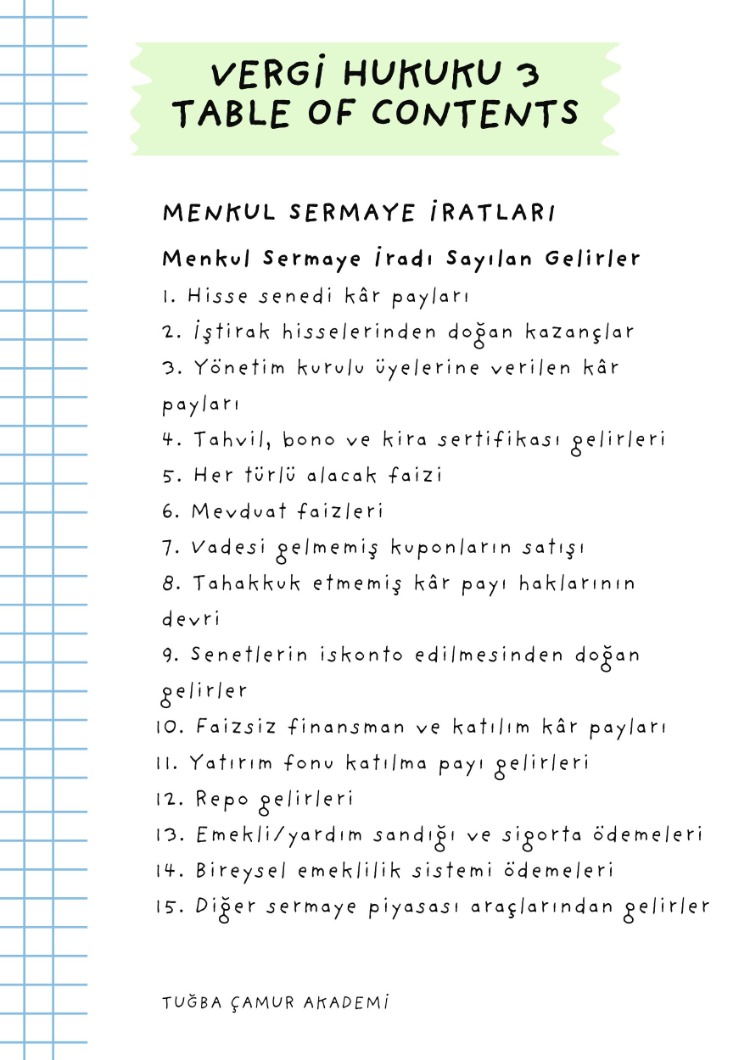 VERGİ HUKUKU 3
TABLE OF CONTENTS
MENKUL SERMAYE İRATLARI
Menkul Sermaye İradı Sayılan Gelirler
1. Hisse senedi kâr payları
2. İştirak hisselerinden doğan kazançlar
3. Yönetim kurulu üyelerine verilen kâr
payları
4. Tahvil, bono ve kira sertifikası gelirleri
5. Her türlü alacak faizi
6. Mevduat faizleri
7. Vadesi gelmemiş kuponların satışı
8. Tahakkuk etmemiş kâr payı haklarının
devri
9. Senetlerin iskonto edilmesinden doğan
gelirler
10. Faizsiz finansman ve katılım kâr payları
11. Yatırım fonu katılma payı gelirleri
12. Repo gelirleri
13. Emekli/yardım sandığı ve sigorta ödemeleri
14. Bireysel emeklilik sistemi ödemeleri
15. Diğer sermaye piyasası araçlarından gelirler
TUĞBA ÇAMUR AKADEMİ